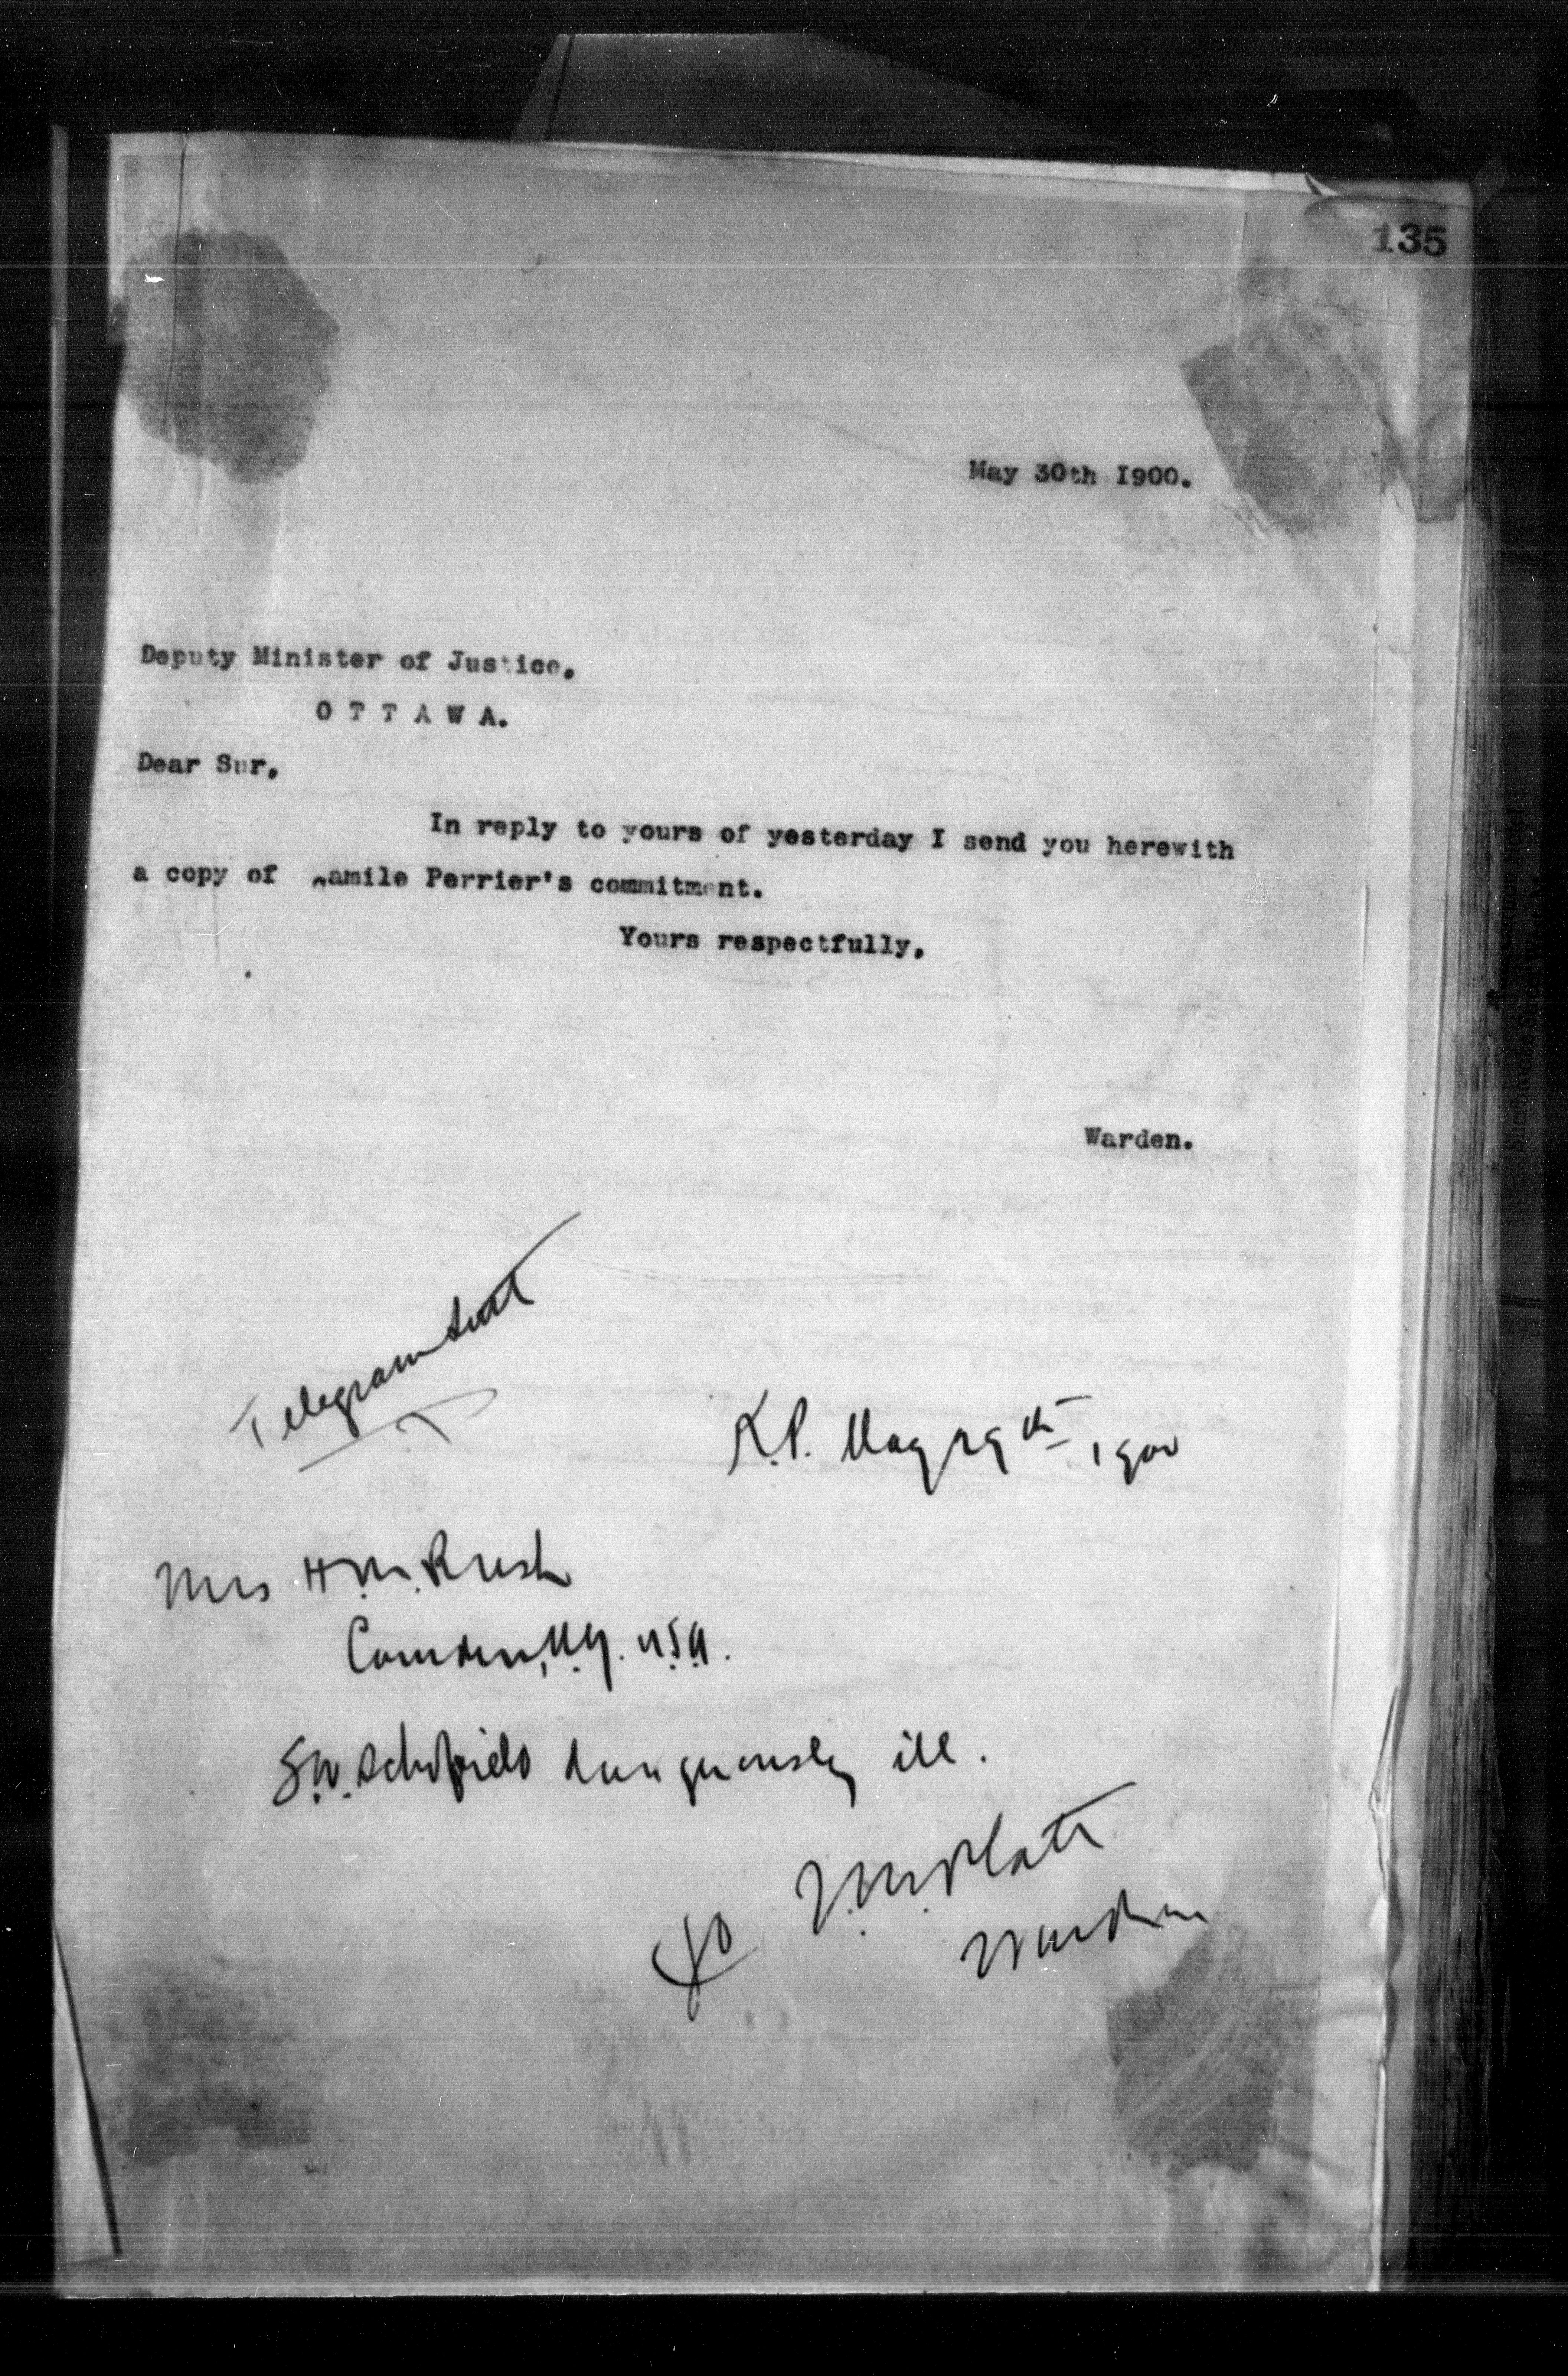 135
May 30th I900.
Deputy Minister of Justice.
O T T A W A.
Dear Sur.
In reply to yours of yesterday I send you herewith
a copy of amile Perrier's commitment.
Yours respectfully,
Warden.
Telegram sent
K.P. May 29th 1900
Mrs H.M. Rush
Camden, N.Y. U.S.A.
S.W. Schofield dangerously ill.
J.M. Platt
Warden